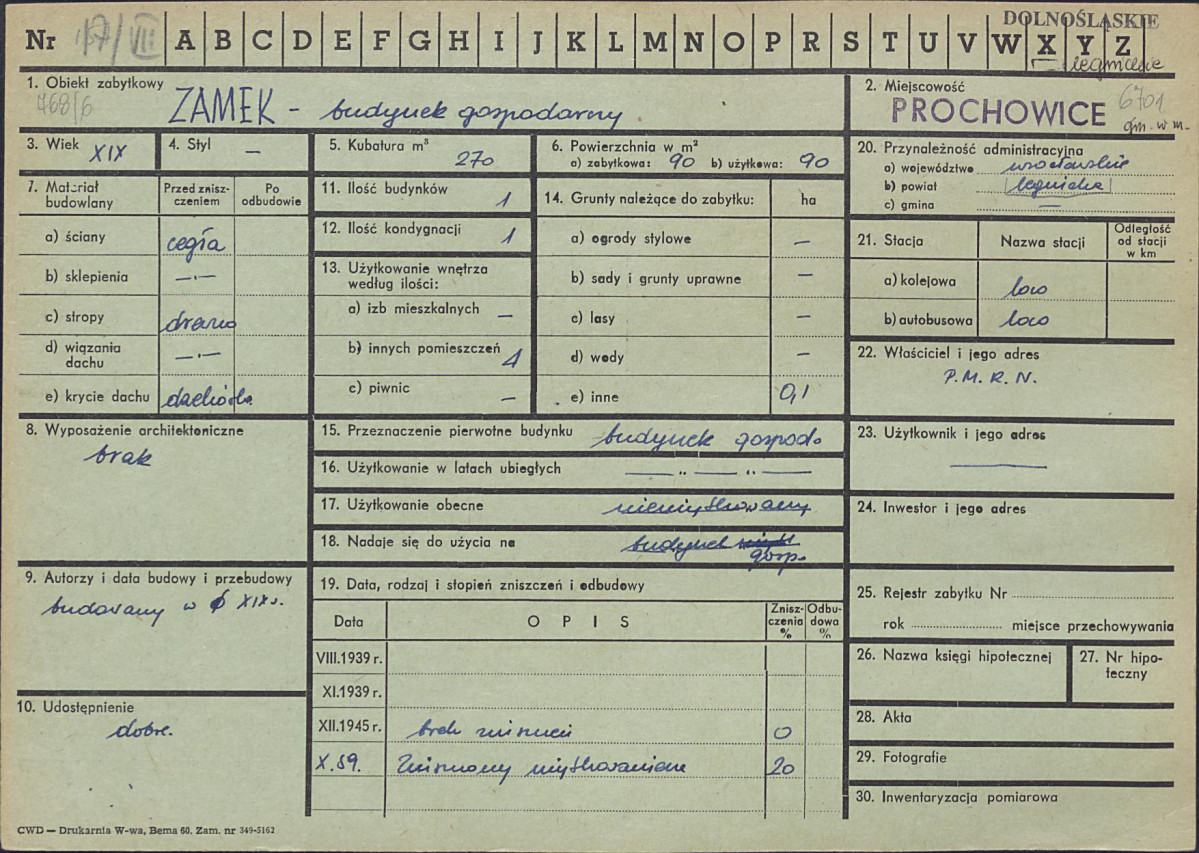 DOLNOŚLĄSKIE
Nr 157/VIII A B C D E F G H I J K L M N O P R S T U V W X Y Z
legnickie
1. Obiekt zabytkowy
768/6
ZAMEK – budynek gospodarny
2. Miejscowość
PROCHOWICE
6701
gm. w m.
3. Wiek XIX
4. Styl —
5. Kubatura m³ 270
6. Powierzchnia w m²
a) zabytkowa: 90 b) użytkowa: 90
20. Przynależność administracyjna
a) województwo wrocławskie
b) powiat legnicka
c) gmina —
7. Materiał budowlany
Przed zniszczeniem
Po odbudowie
a) ściany cegła
b) sklepienia —·—
c) stropy drewno
d) wiązania dachu —·—
e) krycie dachu dachówka
11. Ilość budynków 1
12. Ilość kondygnacji 1
13. Użytkowanie wnętrza według ilości:
a) izb mieszkalnych —
b) innych pomieszczeń 1
c) piwnic —
14. Grunty należące do zabytku: ha
a) ogrody stylowe —
b) sady i grunty uprawne —
c) lasy —
d) wody —
e) inne 0,1
21. Stacja
Nazwa stacji
Odległość od stacji w km
a) kolejowa loco
b) autobusowa loco
22. Właściciel i jego adres
P.M.R.N.
8. Wyposażenie architektoniczne
brak
15. Przeznaczenie pierwotne budynku budynek gospod.
16. Użytkowanie w latach ubiegłych — „ — „ —
17. Użytkowanie obecne nieużytkowany
18. Nadaje się do użycia na budynek
gosp.
23. Użytkownik i jego adres
—
24. Inwestor i jego adres
9. Autorzy i data budowy i przebudowy
budowany w XIX w.
19. Data, rodzaj i stopień zniszczeń i odbudowy
Data
O P I S
Zniszczenia %
Odbudowa %
VIII.1939 r.
XI.1939 r.
XII.1945 r. brak zniszczeń 0
X.59. Zniszczony użytkowaniem 20
25. Rejestr zabytku Nr
rok miejsce przechowywania
26. Nazwa księgi hipotecznej
27. Nr hipoteczny
10. Udostępnienie
dobre.
28. Akta
29. Fotografie
30. Inwentaryzacja pomiarowa
CWD — Drukarnia W-wa, Bema 60. Zam. nr 349-5162